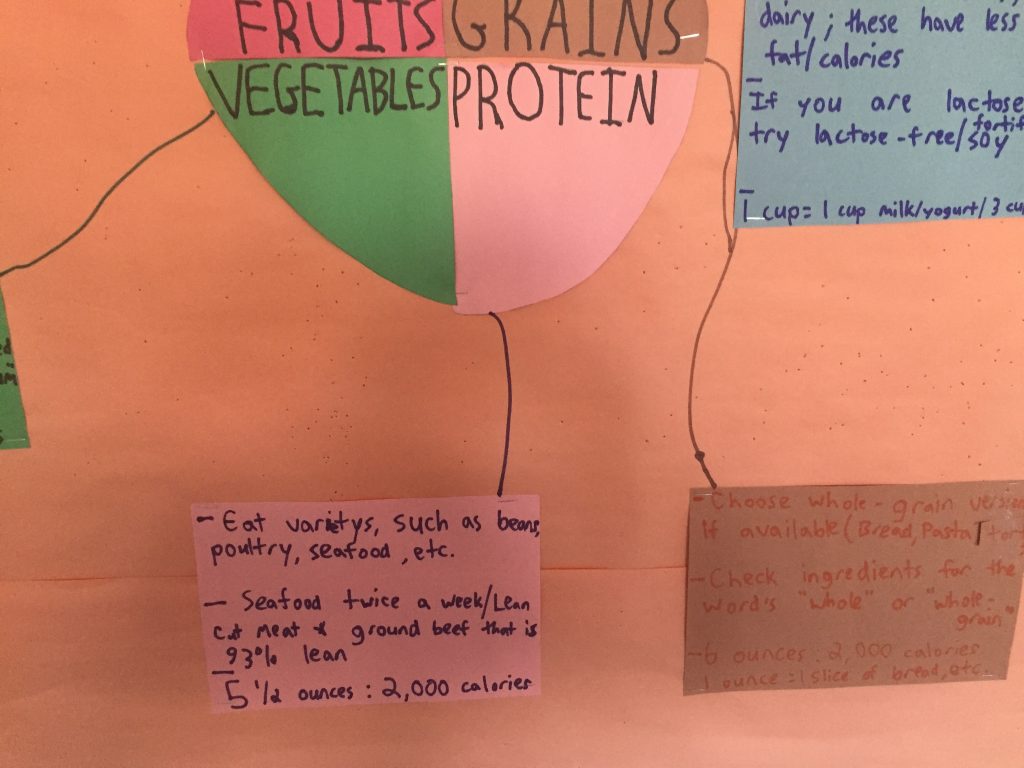 FRUITS GRAINS
VEGETABLES PROTEIN
dairy; these have less
fat/calories
- If you are lactose
try lactose-free/soy
- 1 cup = 1 cup milk/yogurt/3
- Eat varitys, such as beans,
poultry, seafood, etc.
- Seafood twice a week/Lean
cut meat & ground beef that is
93% lean
- 5 1/2 ounces : 2,000 calories
- Choose whole-grain
If available (Bread, Pasta,
- Check ingredients for the
word's "whole" or "whole-
grain"
- 6 ounces : 2,000 calories
1 ounce = 1 slice of bread, etc.